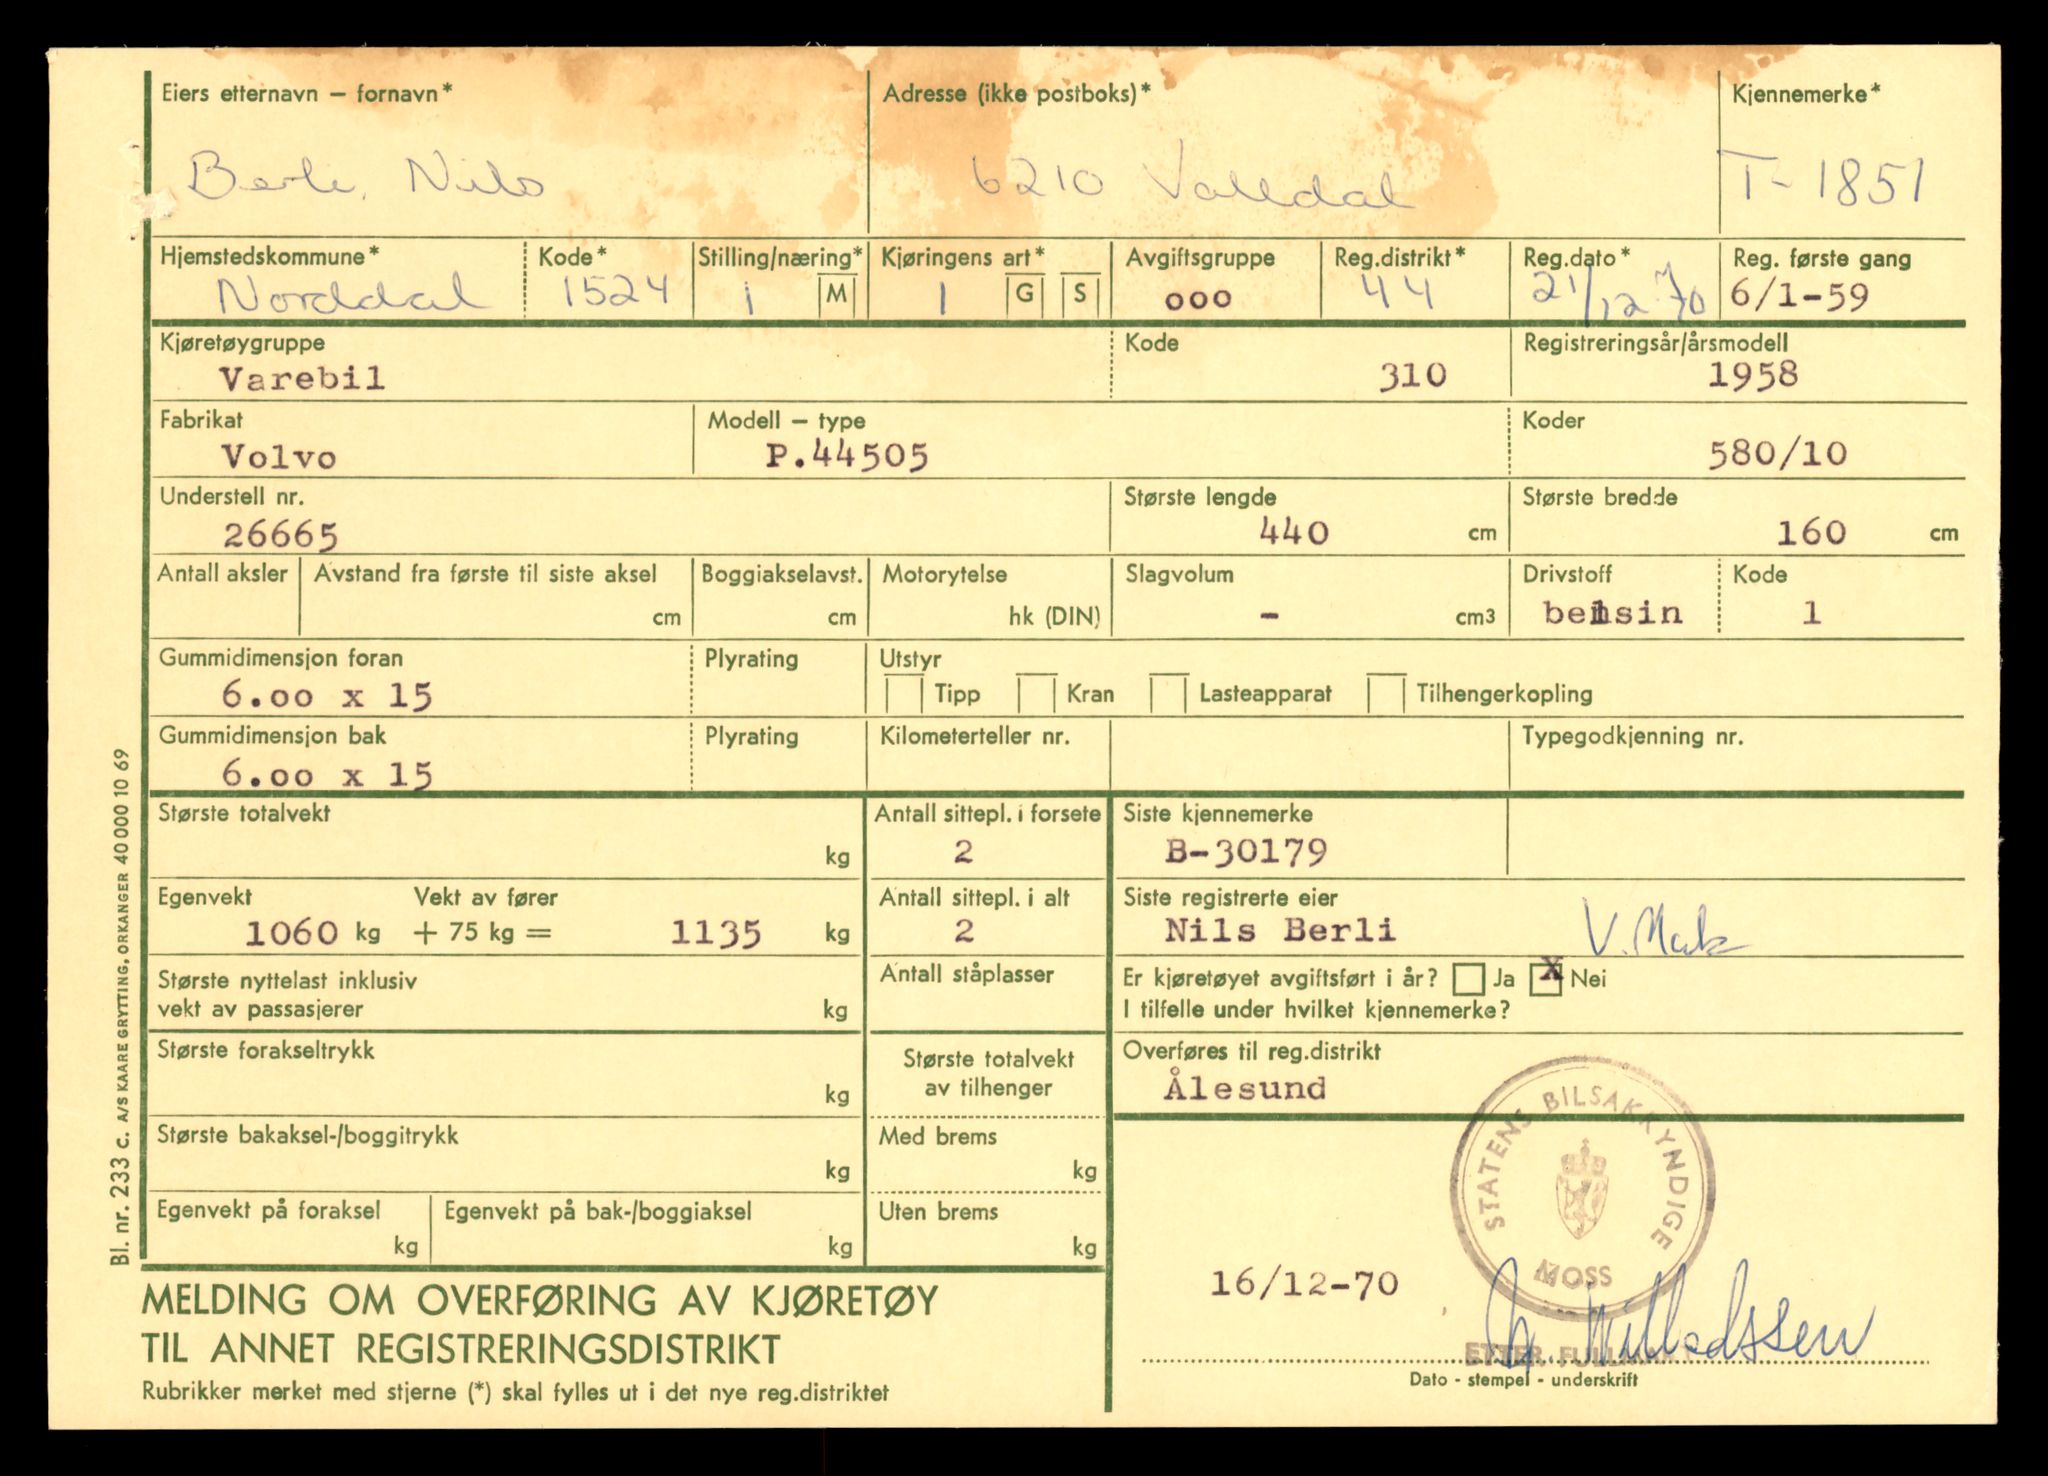 Eiers etternavn – fornavn* Adresse (ikke postboks)* Kjennemerke*
Berli, Nils 6210 Valldal T-1851
Hjemstedskommune* Kode* Stilling/næring* Kjøringens art* Avgiftsgruppe Reg.distrikt* Reg.dato* Reg. første gang
Norddal 1524 1 M 1 G S 000 44 21/12-70 6/1-59
Kjøretøygruppe Kode Registreringsår/årsmodell
Varebil 310 1958
Fabrikat Modell – type Koder
Volvo P.44505 580/10
Understell nr. Største lengde Største bredde
26665 440 cm 160 cm
Antall aksler Avstand fra første til siste aksel Boggiakselavst. Motorytelse Slagvolum Drivstoff Kode
cm cm hk (DIN) - cm3 bensin 1
Gummidimensjon foran Plyrating Utstyr
6.00 x 15 Tipp Kran Lasteapparat Tilhengerkopling
Gummidimensjon bak Plyrating Kilometerteller nr. Typegodkjenning nr.
6.00 x 15
Største totalvekt Antall sittepl. i forsete Siste kjennemerke
kg 2 B-30179
Egenvekt Vekt av fører Antall sittepl. i alt Siste registrerte eier
1060 kg + 75 kg = 1135 kg 2 Nils Berli
Største nyttelast inklusiv Antall ståplasser Er kjøretøyet avgiftsført i år? Ja X Nei
vekt av passasjerer kg I tilfelle under hvilket kjennemerke?
Største forakseltrykk Største totalvekt Overføres til reg.distrikt
kg av tilhenger Ålesund
Største bakaksel-/boggitrykk Med brems
kg kg
Egenvekt på foraksel Egenvekt på bak-/boggiaksel Uten brems
kg kg kg
STATENS BILSAKKYNDIGE
MOSS
16/12-70
MELDING OM OVERFØRING AV KJØRETØY
TIL ANNET REGISTRERINGSDISTRIKT
Willadssen
ETTER FULLMAKT
Dato - stempel - underskrift
Rubrikker merket med stjerne (*) skal fylles ut i det nye reg.distriktet
Bl. nr. 233 C. A/S KAARE GRYTTING, ORKANGER 40 000 10 69